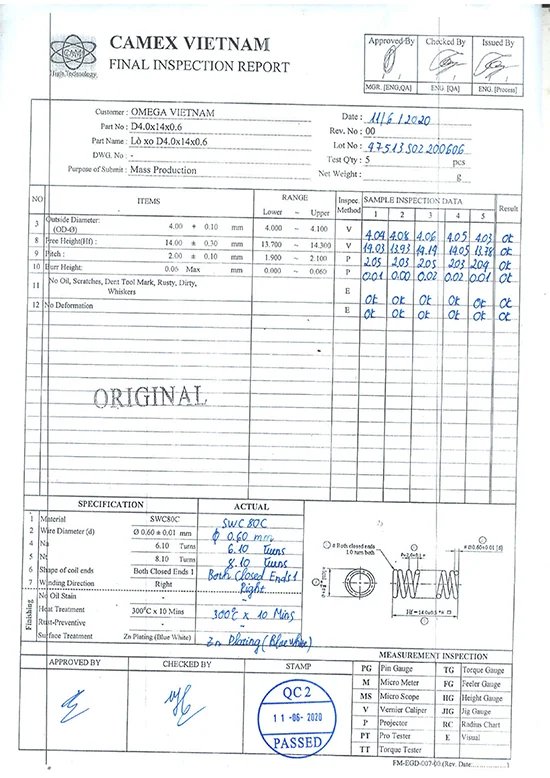 CAMEX VIETNAM
FINAL INSPECTION REPORT
High Technology
Approved By Checked By Issued By
MGR. [ENG,QA] ENG. [QA] ENG. [Process]
Customer : OMEGA VIETNAM
Part No : D4.0x14x0.6
Part Name : Lò xo D4.0x14x0.6
DWG. No : -
Purpose of Submit : Mass Production
Date : 11/6/2020
Rev. No : 00
Lot No : 97513S02200606
Test Q'ty : 5 pcs
Net Weight : g
NO ITEMS RANGE Inspec. Method SAMPLE INSPECTION DATA Result
Lower ~ Upper 1 2 3 4 5
3 Outside Diameter: (OD-Ø) 4.00 + 0.10 mm 4.000 ~ 4.100 V 4.04 4.08 4.06 4.05 4.03 Ok
8 Free Height(Hf) : 14.00 ± 0.30 mm 13.700 ~ 14.300 V 14.03 13.93 14.19 14.05 13.78 Ok
9 Pitch : 2.00 ± 0.10 mm 1.900 ~ 2.100 P 2.05 2.03 2.05 2.03 2.04 Ok
10 Burr Height: 0.06 Max mm 0.000 ~ 0.060 P 0.01 0.00 0.02 0.02 0.01 Ok
11 No Oil, Scratches, Dent Tool Mark, Rusty, Dirty, Whiskers E Ok Ok Ok Ok Ok Ok
12 No Deformation E Ok Ok Ok Ok Ok Ok
ORIGINAL
SPECIFICATION ACTUAL
1 Material SWC80C SWC 80C
2 Wire Diameter (d) Ø 0.60 ± 0.01 mm ϕ 0.60 mm
4 Na 6.10 Turns 6.10 Turns
5 Nt 8.10 Turns 8.10 Turns
6 Shape of coil ends Both Closed Ends 1 Both Closed Ends 1
7 Winding Direction Right Right
Finishing
No Oil Stain -
Heat Treatment 300°C x 10 Mins 300°C x 10 Mins
Rust-Preventive -
Surface Treatment Zn Plating (Blue White) Zn Plating (Blue white)
Both closed ends
1.0 turn both
APPROVED BY CHECKED BY STAMP
QC 2
11-06-2020
PASSED
MEASUREMENT INSPECTION
PG Pin Gauge TG Torque Gauge
M Micro Meter FG Feeler Gauge
MS Micro Scope HG Height Gauge
V Vernier Caliper JIG Jig Gauge
P Projector RC Radius Chart
PT Pro Tester E Visual
TT Torque Tester
FM-EGD-007-00 (Rev. Date: )